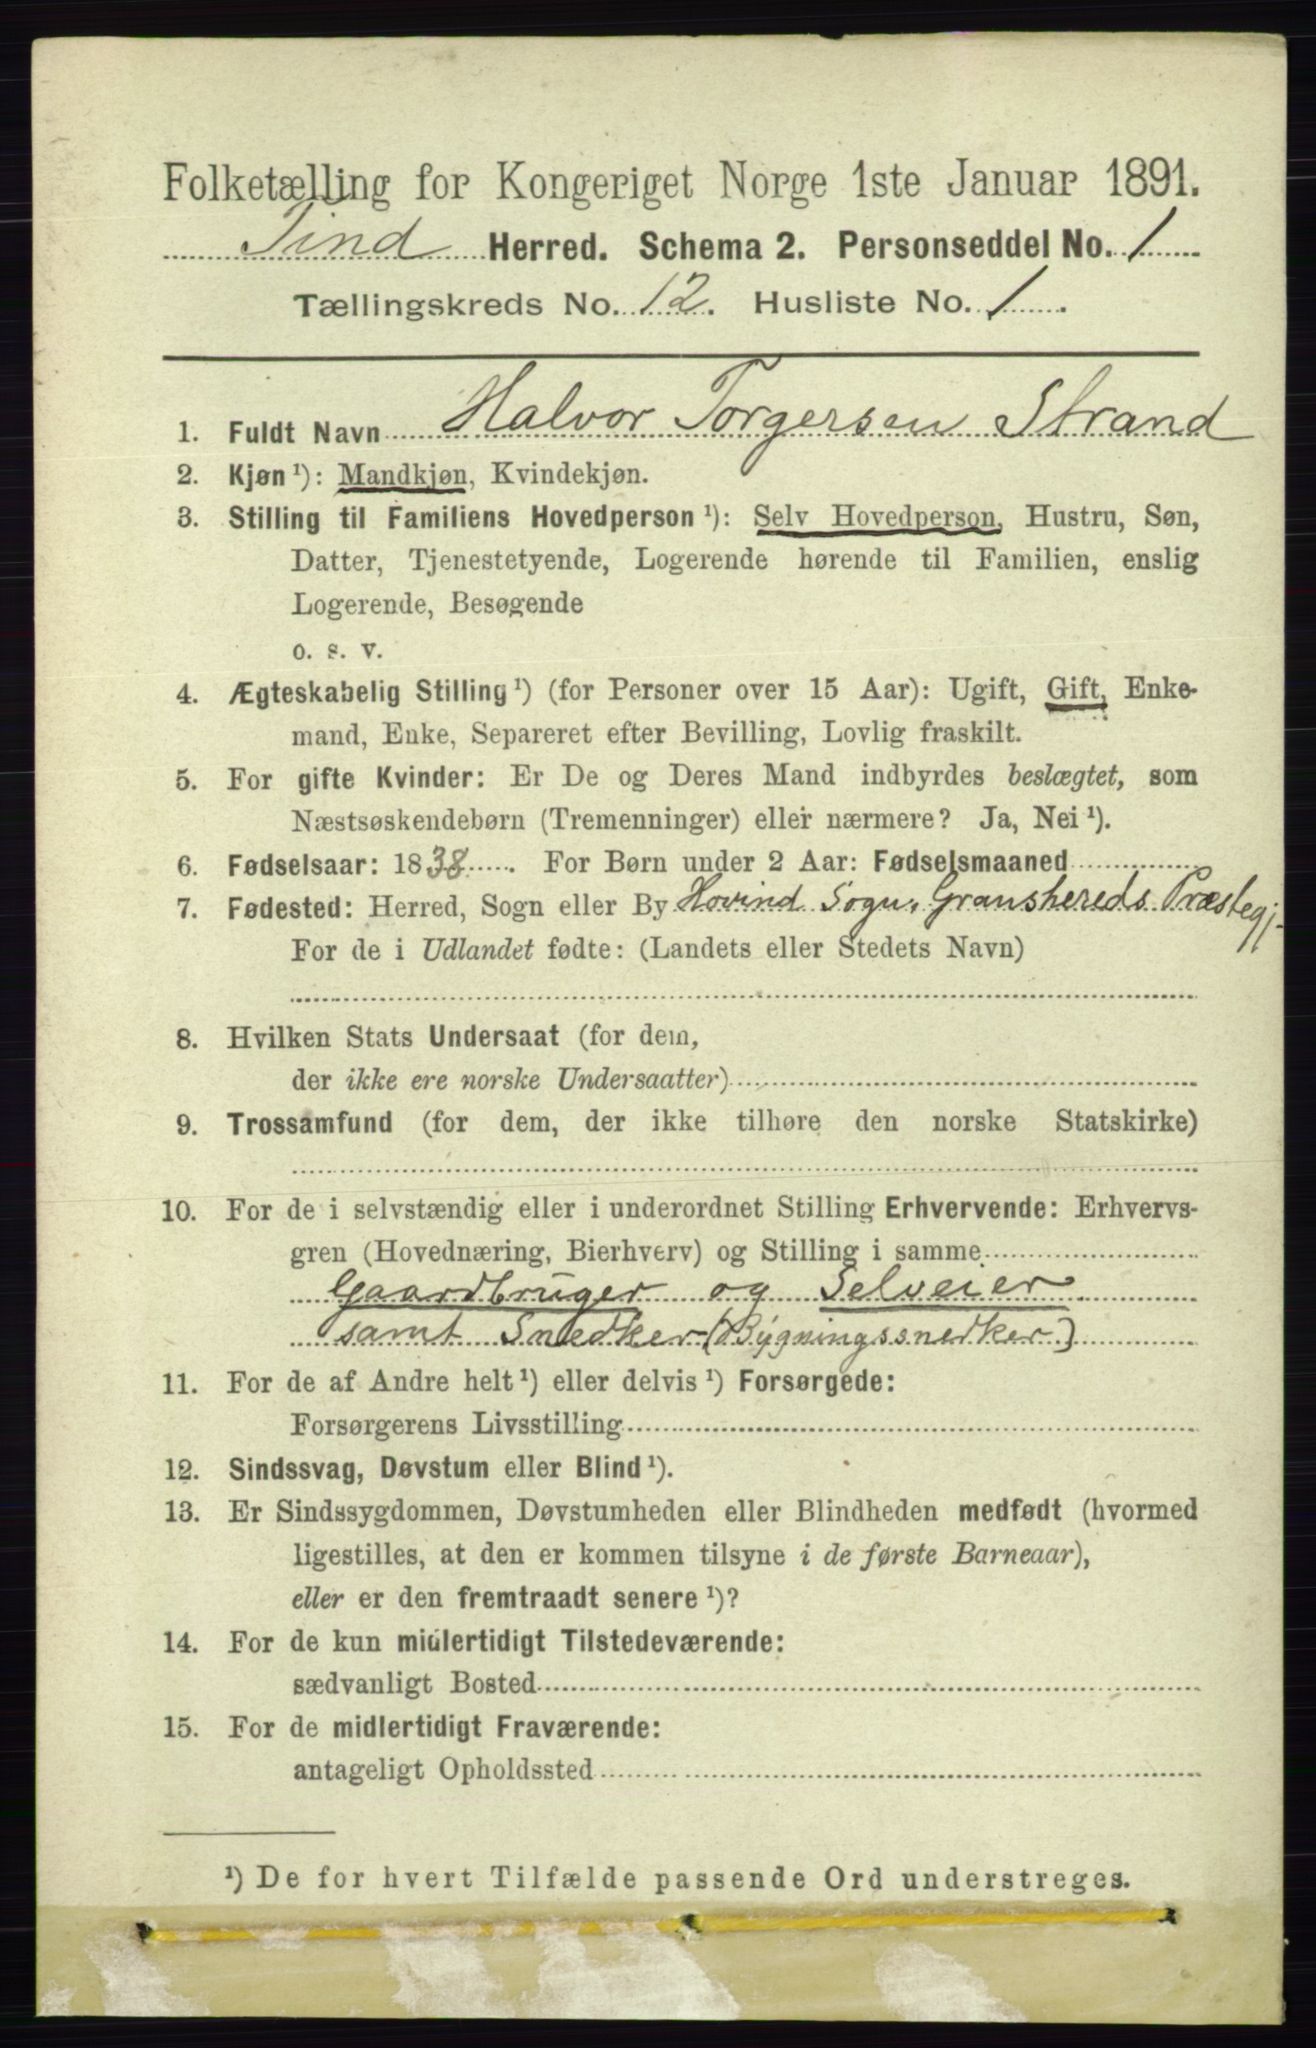 Folketælling for Kongeriget Norge 1ste Januar 1891.
Tind Herred. Schema 2. Personseddel No. 1
Tællingskreds No. 12. Husliste No. 1.
1. Fuldt Navn Halvor Torgersen Strand
2. Kjøn ¹): Mandkjøn, Kvindekjøn.
3. Stilling til Familiens Hovedperson ¹): Selv Hovedperson, Hustru, Søn,
Datter, Tjenestetyende, Logerende hørende til Familien, enslig
Logerende, Besøgende
o. s. v.
4. Ægteskabelig Stilling ¹) (for Personer over 15 Aar): Ugift, Gift, Enke-
mand, Enke, Separeret efter Bevilling, Lovlig fraskilt.
5. For gifte Kvinder: Er De og Deres Mand indbyrdes beslægtet, som
Næstsøskendebørn (Tremenninger) eller nærmere? Ja, Nei ¹).
6. Fødselsaar: 1838. For Børn under 2 Aar: Fødselsmaaned
7. Fødested: Herred, Sogn eller By Hovind Sogn, Gransherreds Præstegj.
For de i Udlandet fødte: (Landets eller Stedets Navn)
8. Hvilken Stats Undersaat (for dem,
der ikke ere norske Undersaatter)
9. Trossamfund (for dem, der ikke tilhøre den norske Statskirke)
10. For de i selvstændig eller i underordnet Stilling Erhvervende: Erhvervs-
gren (Hovednæring, Bierhverv) og Stilling i samme
Gaardbruger og Selveier
samt Snedker (Bygningssnedker)
11. For de af Andre helt ¹) eller delvis ¹) Forsørgede:
Forsørgerens Livsstilling
12. Sindssvag, Døvstum eller Blind ¹).
13. Er Sindssygdommen, Døvstumheden eller Blindheden medfødt (hvormed
ligestilles, at den er kommen tilsyne i de første Barneaar),
eller er den fremtraadt senere ¹)?
14. For de kun midlertidigt Tilstedeværende:
sædvanligt Bosted
15. For de midlertidigt Fraværende:
antageligt Opholdssted
¹) De for hvert Tilfælde passende Ord understreges.